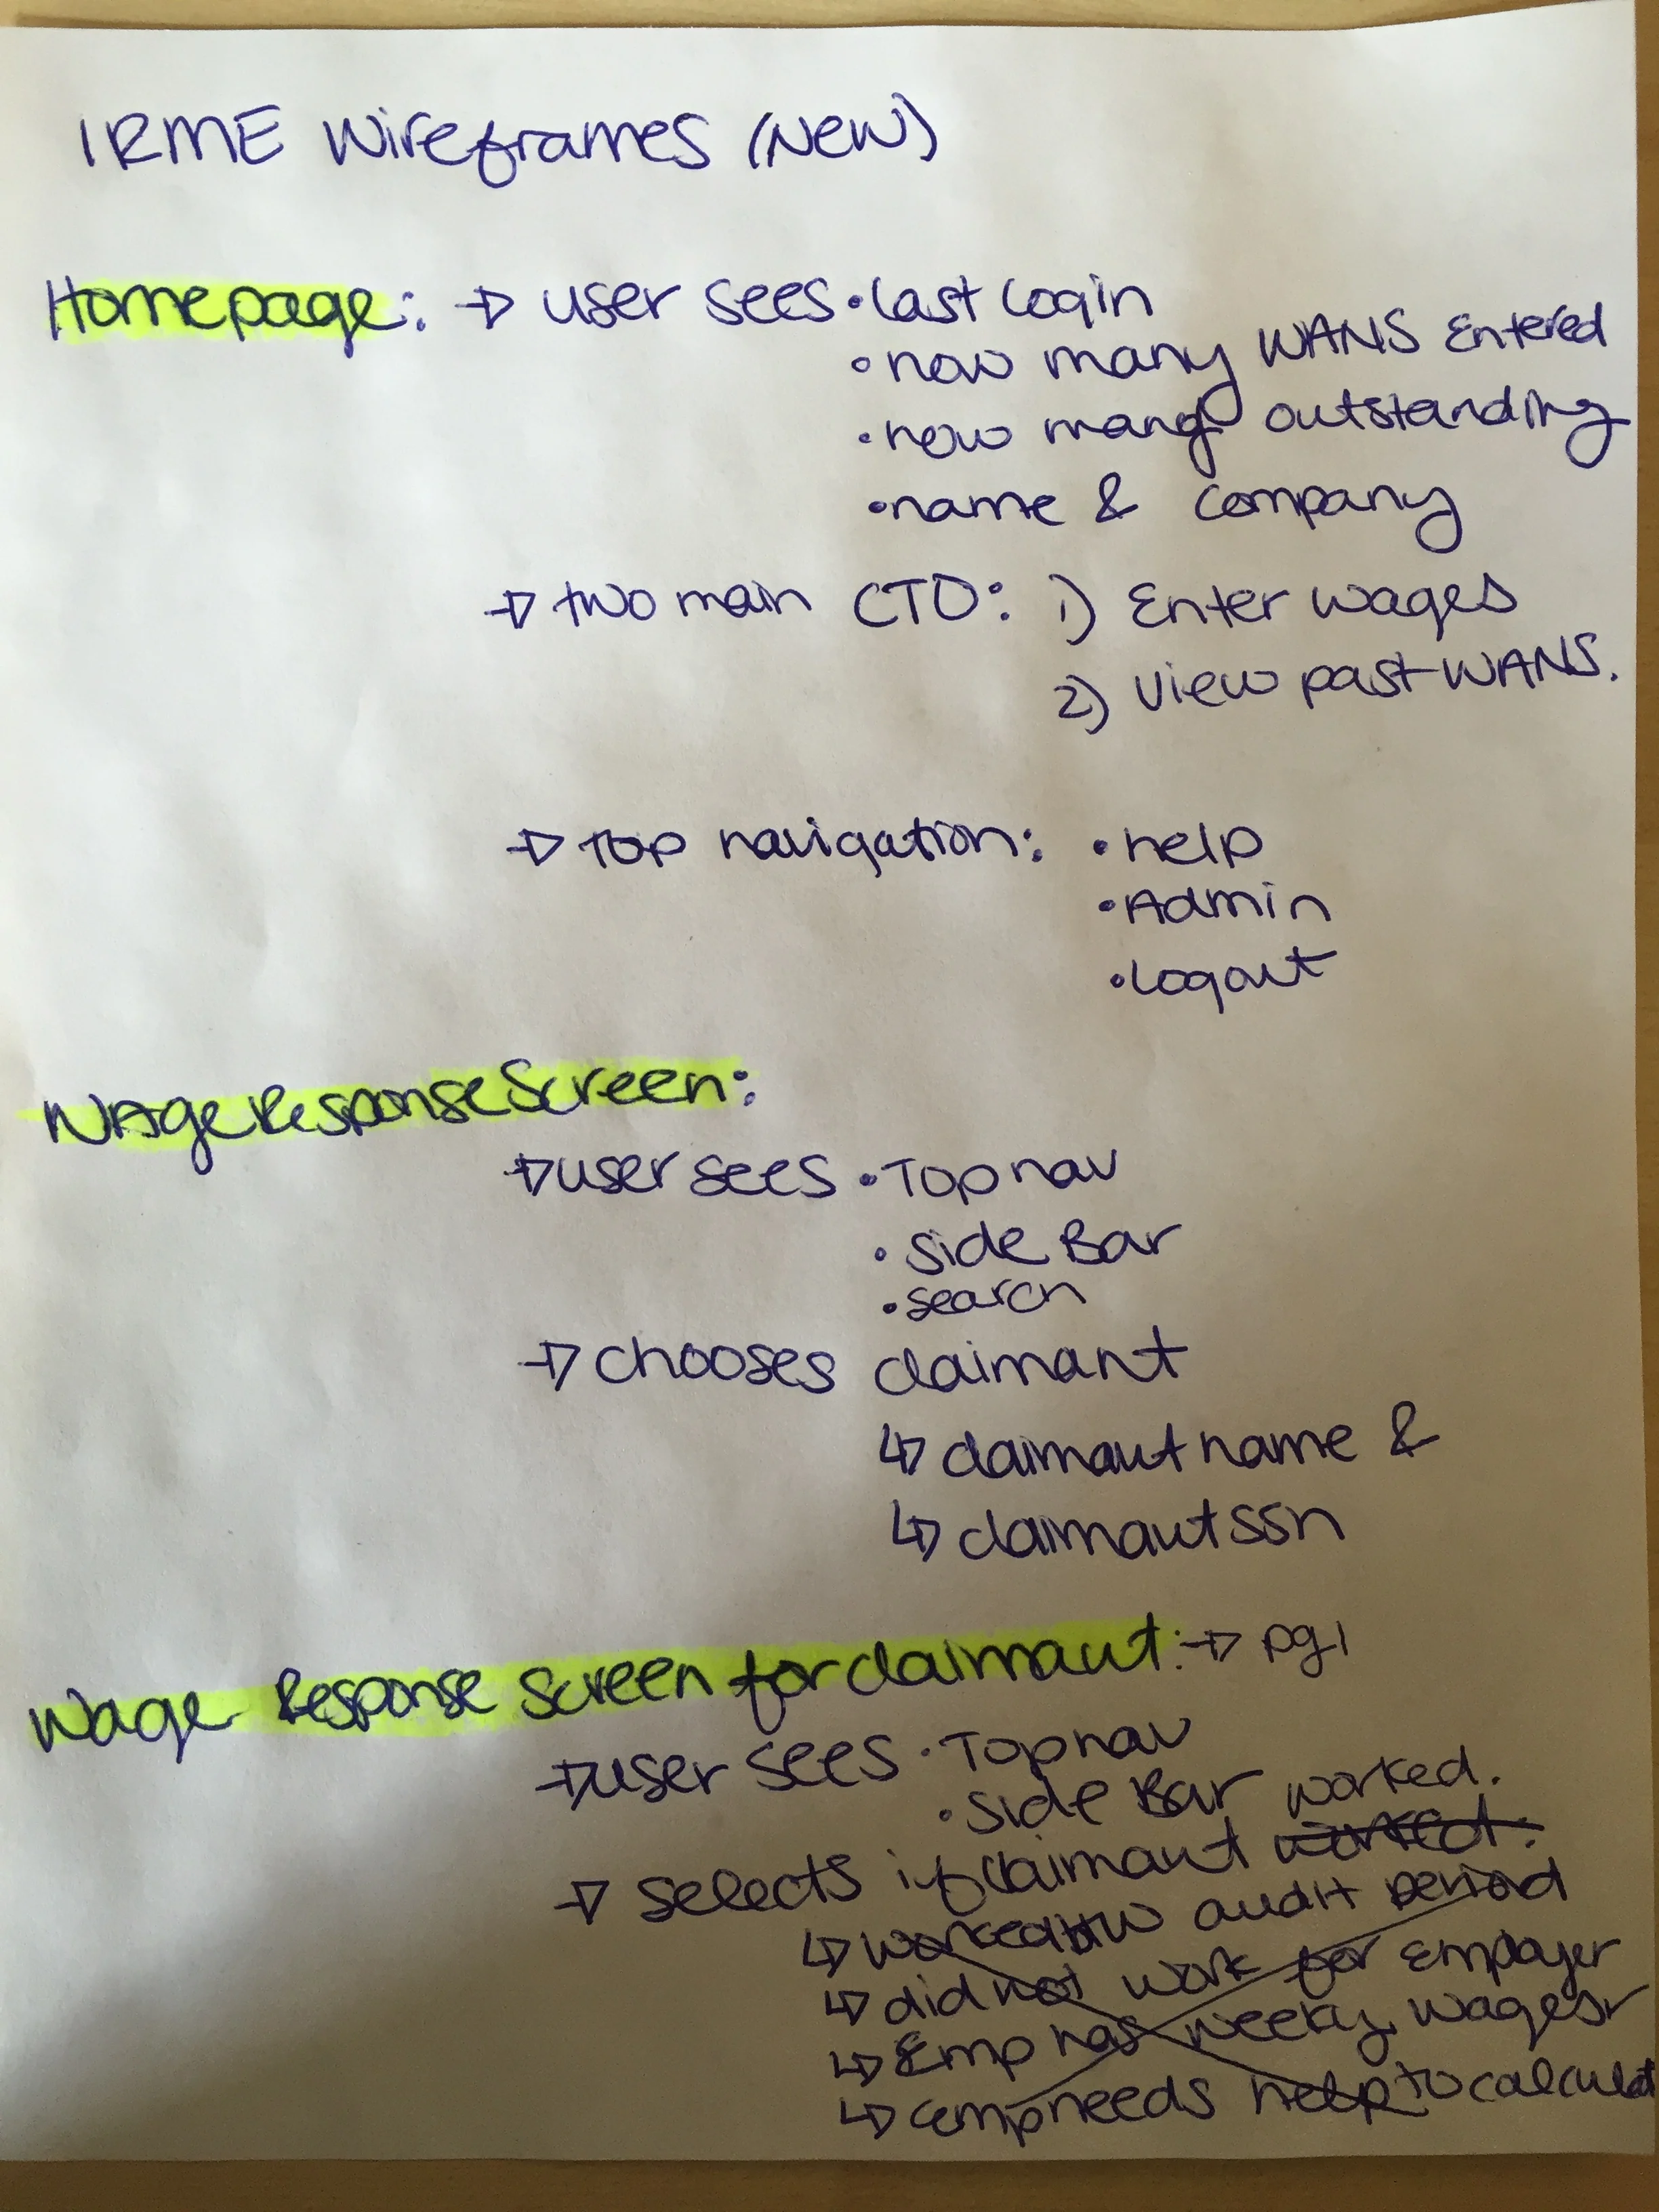 IRME Wireframes (New)
Homepage: → user sees • last login
• how many WANS Entered
• how many outstanding
• name & company
→ two main CTO: 1) Enter wages
2) View past WANS.
→ Top navigation: • help
• Admin
• Logout
WAge Response Screen:
→ user sees • Top nav
• side Bar
• search
→ chooses claimant
↳ claimant name &
↳ claimant ssn
Wage Response Screen for claimant: → pg 1
→ user sees • Top nav
• side Bar
→ selects if claimant worked. worked.
↳ worked btw audit period
↳ did not work for Employer
↳ Emp has weekly wages
↳ emp needs help to calculat